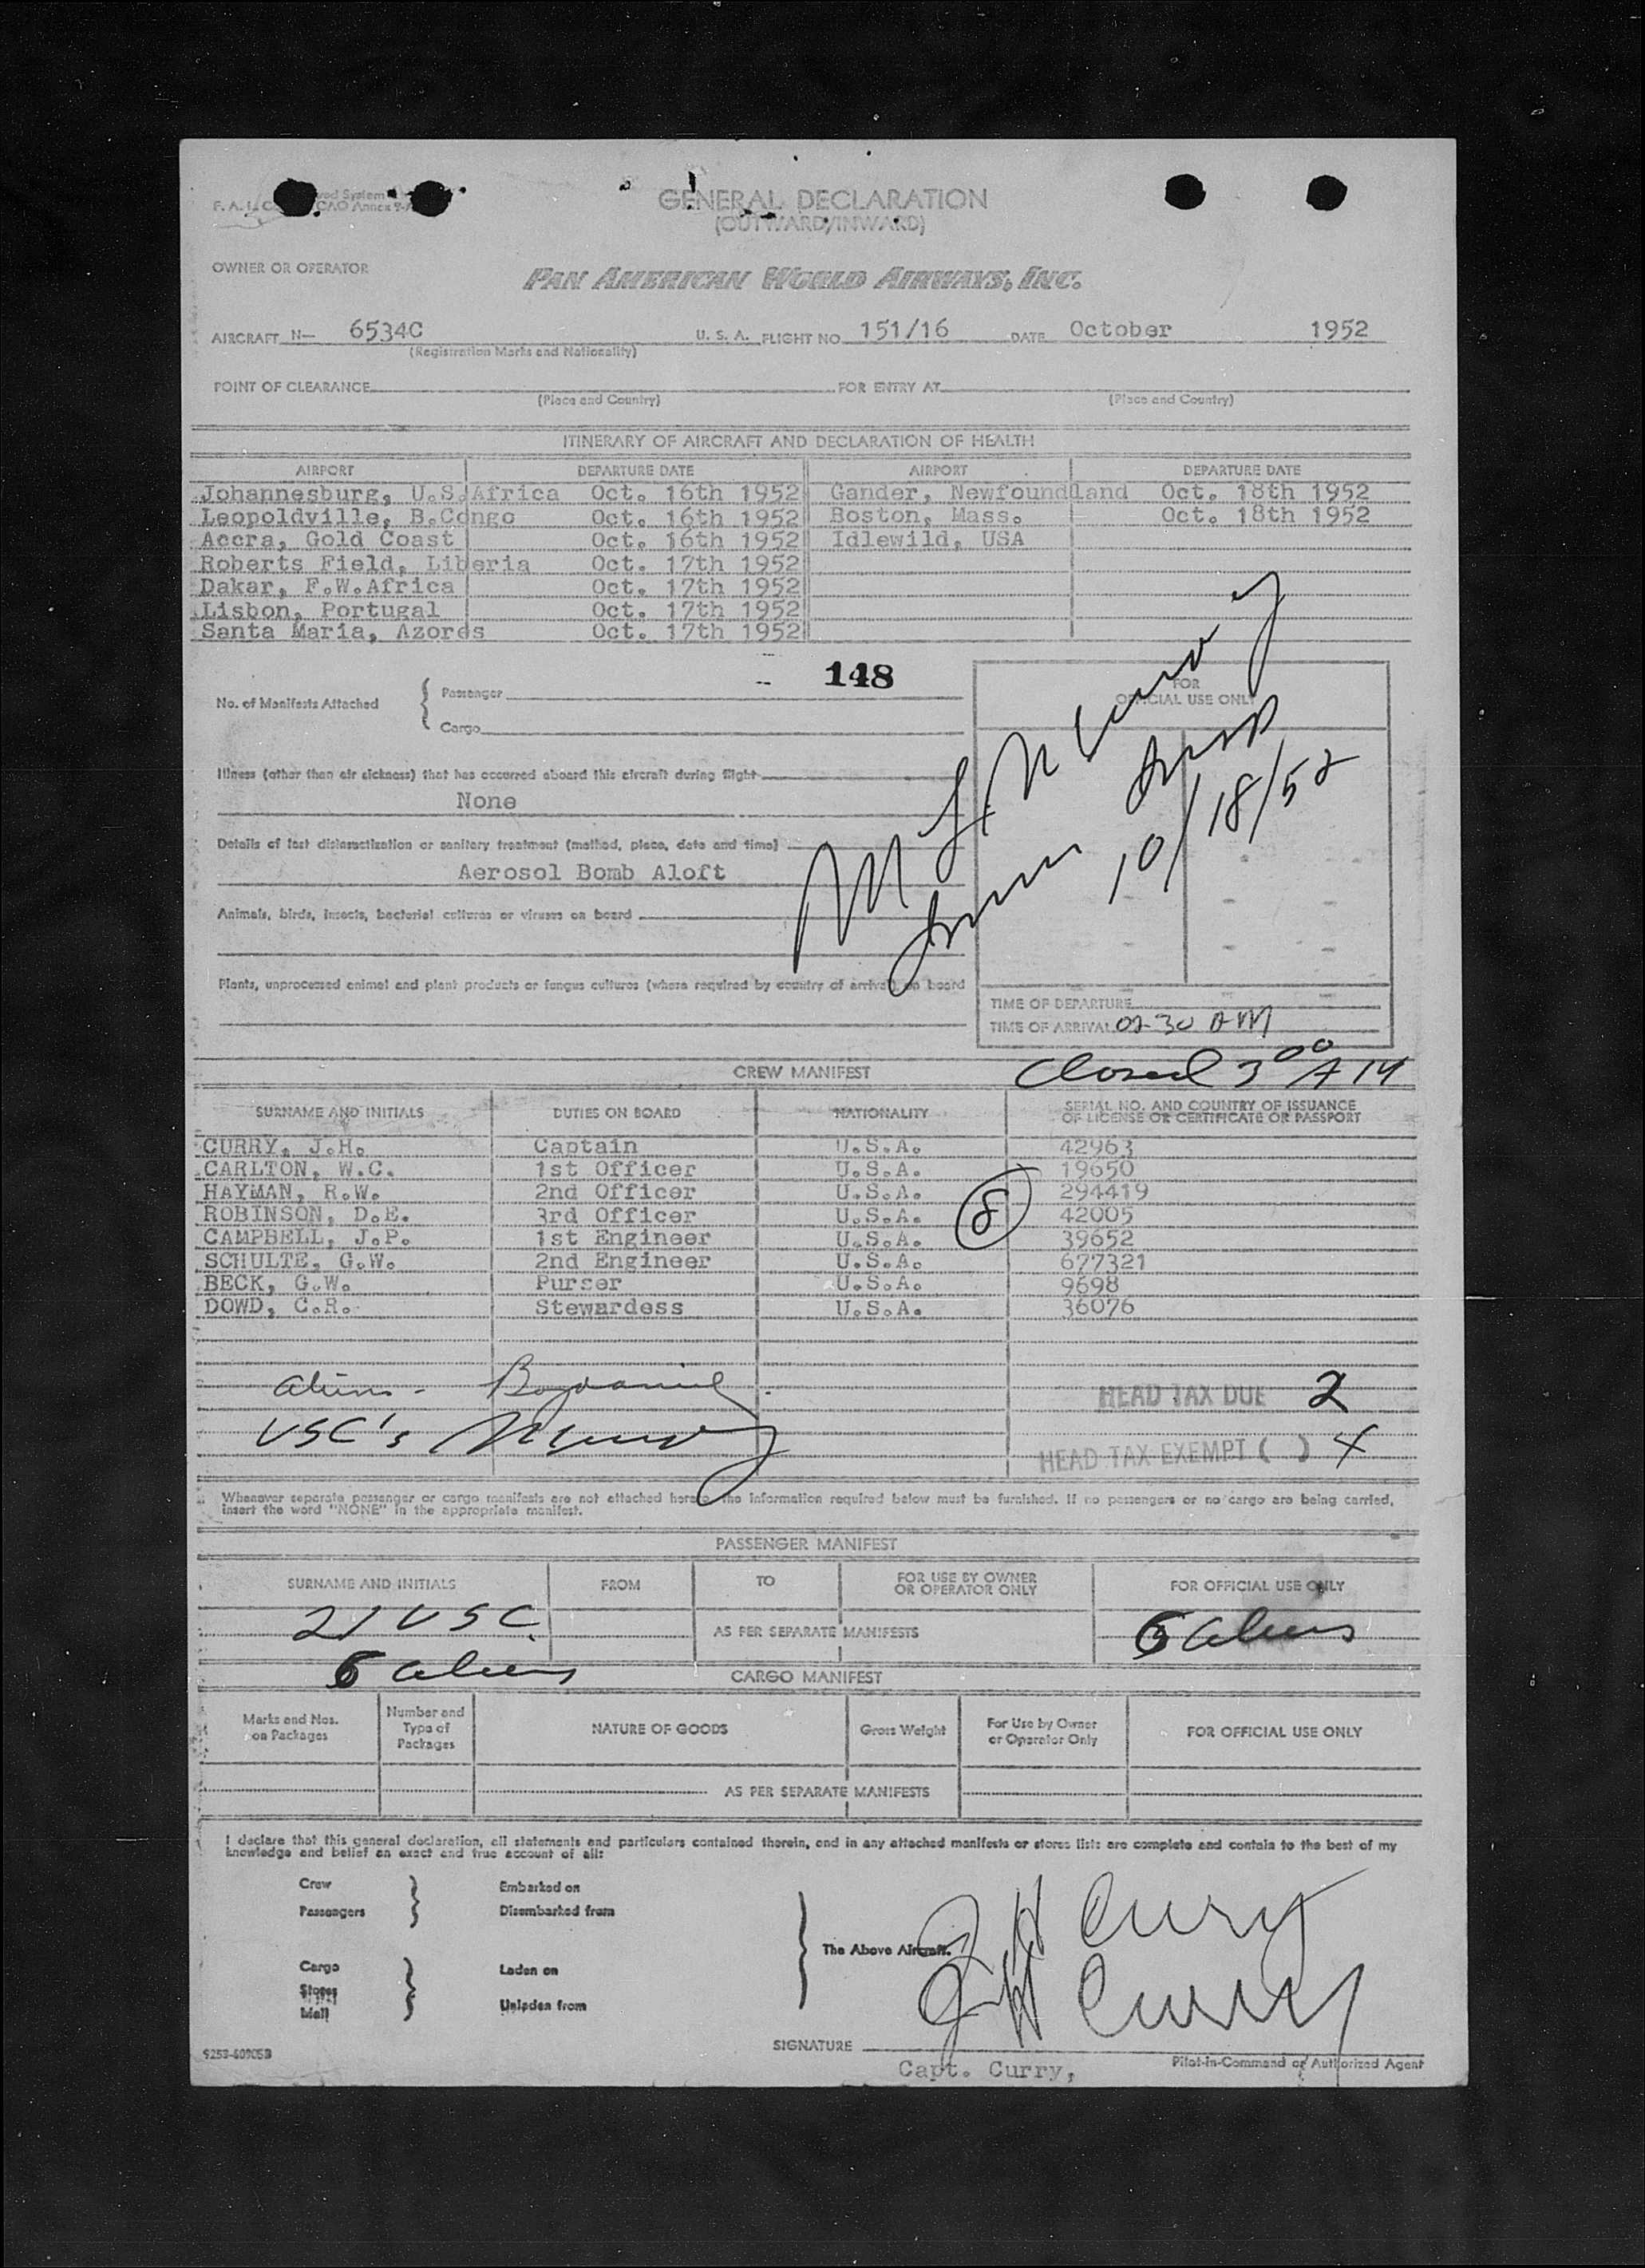 GENERAL DECLARATION
(OUTWARD/INWARD)
OWNER OR OPERATOR
PAN AMERICAN WORLD AIRWAYS, INC.
AIRCRAFT N— 6534C U. S. A. FLIGHT NO 151/16 DATE October 1952
(Registration Marks and Nationality)
POINT OF CLEARANCE FOR ENTRY AT
(Place and Country) (Place and Country)
ITINERARY OF AIRCRAFT AND DECLARATION OF HEALTH
AIRPORT DEPARTURE DATE AIRPORT DEPARTURE DATE
Johannesburg, U.S.Africa Oct. 16th 1952 Gander, Newfoundland Oct. 18th 1952
Leopoldville, B.Congo Oct. 16th 1952 Boston, Mass. Oct. 18th 1952
Accra, Gold Coast Oct. 16th 1952 Idlewild, USA
Roberts Field, Liberia Oct. 17th 1952
Dakar, F.W.Africa Oct. 17th 1952
Lisbon, Portugal Oct. 17th 1952
Santa Maria, Azores Oct. 17th 1952
148
No. of Manifests Attached { Passenger
Cargo
FOR
OFFICIAL USE ONLY
10/18/52
Illness (other than air sickness) that has occurred aboard this aircraft during flight
None
Details of last disinsectization or sanitary treatment (method, place, date and time)
Aerosol Bomb Aloft
Animals, birds, insects, bacterial cultures or viruses on board
Plants, unprocessed animal and plant products or fungus cultures (where required by country of arrival) on board
TIME OF DEPARTURE
TIME OF ARRIVAL 02-30 AM
Closed 3 00 AM
CREW MANIFEST
SURNAME AND INITIALS DUTIES ON BOARD NATIONALITY SERIAL NO. AND COUNTRY OF ISSUANCE
OF LICENSE OR CERTIFICATE OR PASSPORT
CURRY, J.H. Captain U.S.A. 42963
CARLTON, W.C. 1st Officer U.S.A. 19650
HAYMAN, R.W. 2nd Officer U.S.A. 294419
ROBINSON, D.E. 3rd Officer U.S.A. 8 42005
CAMPBELL, J.P. 1st Engineer U.S.A. 39652
SCHULTE, G.W. 2nd Engineer U.S.A. 677321
BECK, G.W. Purser U.S.A. 9698
DOWD, C.R. Stewardess U.S.A. 36076
Aliens -
HEAD TAX DUE 2
USC's
HEAD TAX EXEMPT ( ) 4
Whenever separate passenger or cargo manifests are not attached hereto, the information required below must be furnished. If no passengers or no cargo are being carried,
insert the word "NONE" in the appropriate manifest.
PASSENGER MANIFEST
SURNAME AND INITIALS FROM TO FOR USE BY OWNER
OR OPERATOR ONLY FOR OFFICIAL USE ONLY
21 USC
AS PER SEPARATE MANIFESTS
6 Aliens
6 Aliens
CARGO MANIFEST
Marks and Nos.
on Packages
Number and
Type of
Packages
NATURE OF GOODS
Gross Weight
For Use by Owner
or Operator Only
FOR OFFICIAL USE ONLY
AS PER SEPARATE MANIFESTS
I declare that this general declaration, all statements and particulars contained therein, and in any attached manifests or stores lists are complete and contain to the best of my
knowledge and belief an exact and true account of all:
Crew Embarked on
Passengers Disembarked from
The Above Aircraft.
Cargo Laden on
Stores
Mail Unladen from
J H Curry
J H Curry
SIGNATURE
Capt. Curry,
Pilot-in-Command or Authorized Agent